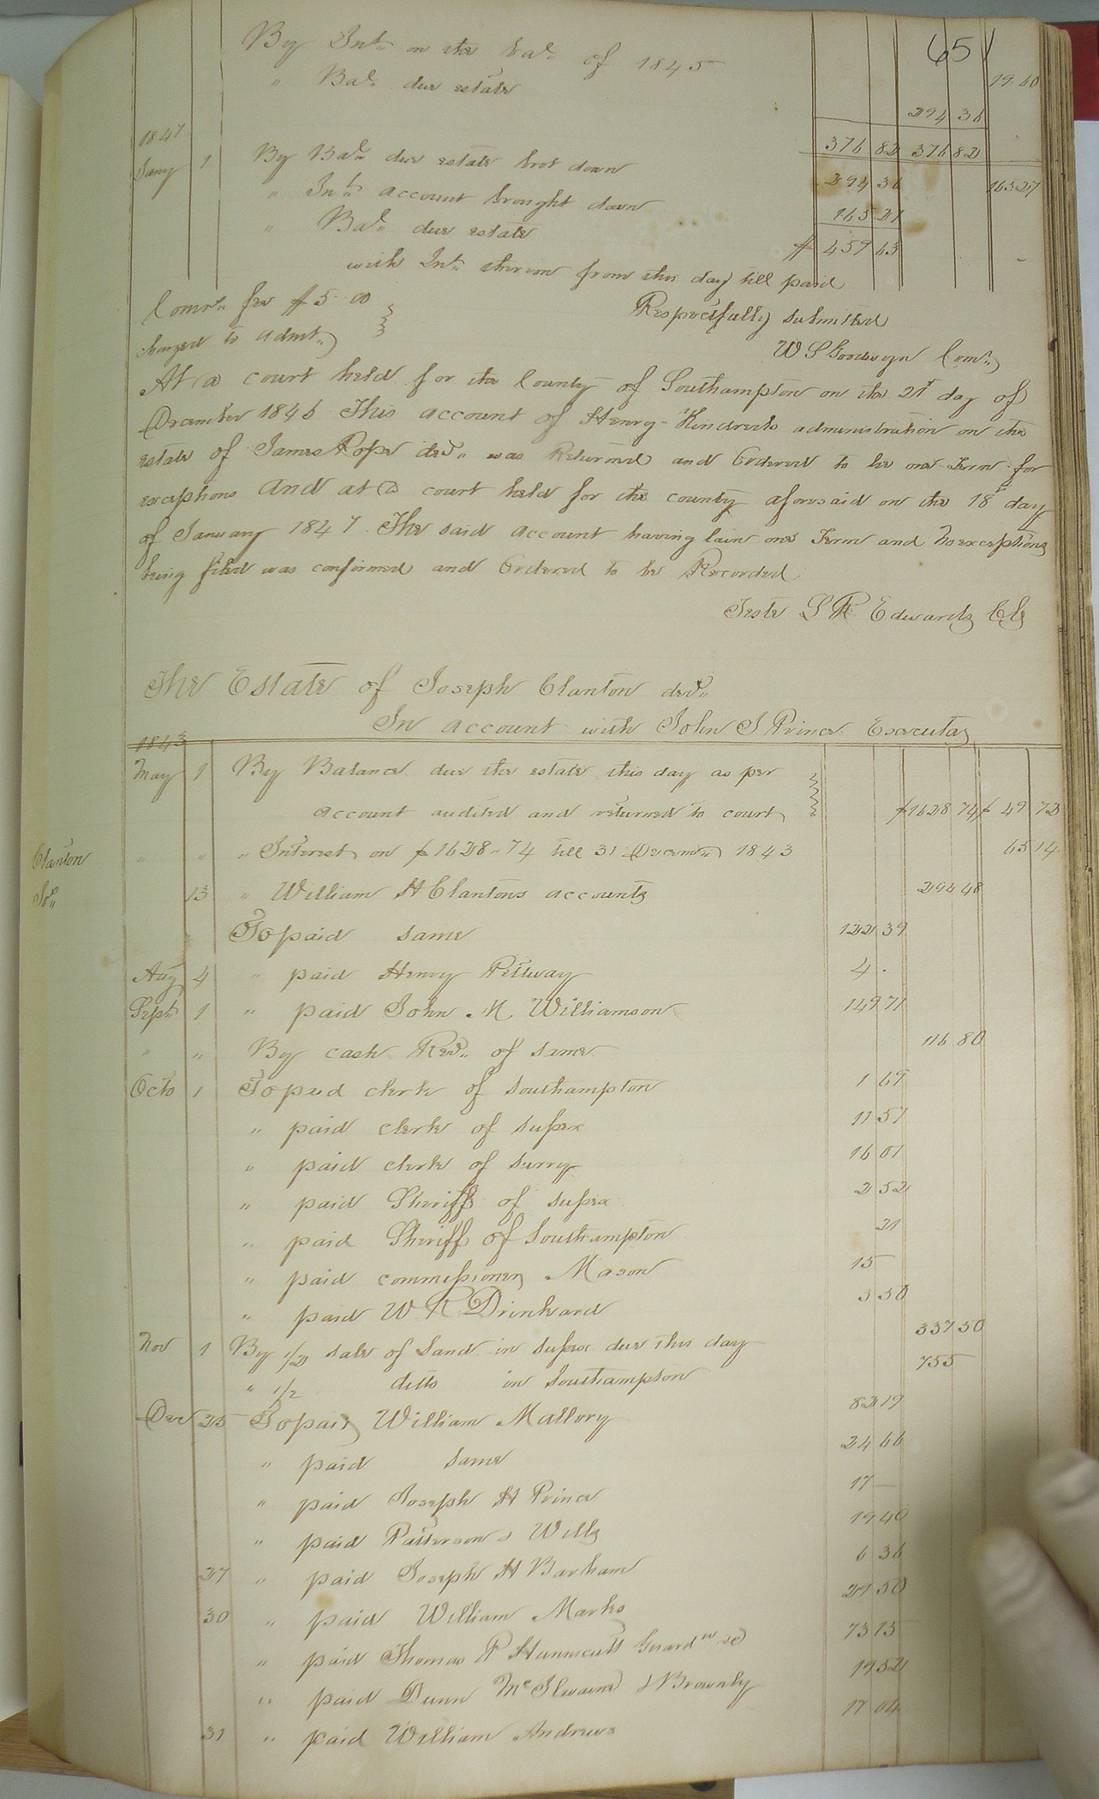 651
By Int. on the bal. of 1845 19 60
" Bal. due estate 294 36
376 82 376 82
1847
Jany 1 By Bal. due estate brot down 294 36 165 27
" Int. account brought down 165 27
" Bal. due estate $ 459 63
with Int. thereon from this day till paid
Comrs. fee $5.00
charged to admt.
Respectfully submitted
W S Goodwyn Comr.
At a court held for the County of Southampton on the 21st day of
December 1846 This account of Henry Kindreds administration on the
estate of James Pope decd. was Returned and Ordered to lie one Term for
exceptions And at a court held for the county aforesaid on the 18th day
of January 1847 The said account having lain one Term and No exceptions
being filed was confirmed and Ordered to be Recorded
Teste L R Edwards Clk
The Estate of Joseph Clanton decd.
In account with John S Prince Executor
1843
May 1 By Balance due the estate this day as per
account audited and returned to court $1628 74 $ 49 72
" " " Interest on $1628.74 till 31 December 1843 65 14
Clanton
13 " William H Clantons accounts 294 48
To paid same 122 39
Aug 4 " paid Henry Pettway 4 .
Sept 1 " paid John M Williamson 149 71
" " By cash Recd. of same 116 80
Octo 1 To paid clerk of Southampton 1 69
" paid clerk of Sussex 11 57
" paid clerk of Surry 16 01
" paid Sheriff of Sussex 2 52
" paid Sheriff of Southampton 21
" paid commissioner Mason 15
" paid W R Drinkard 3 50
Nov 1 By 1/2 sale of Land in Sussex due this day 337 50
" 1/2 ditto in Southampton 755
Dec 25 To paid William Mallory 82 19
" paid same 24 66
" paid Joseph H Prince 17 —
" paid Patterson & Wells 19 40
27 " paid Joseph H Barham 6 36
30 " paid William Marks 21 50
" paid Thomas P Hunnicutt Guardn &c 73 15
" paid Dunn McIlwaine & Brownly 19 52
31 " paid William Andrews 17 04